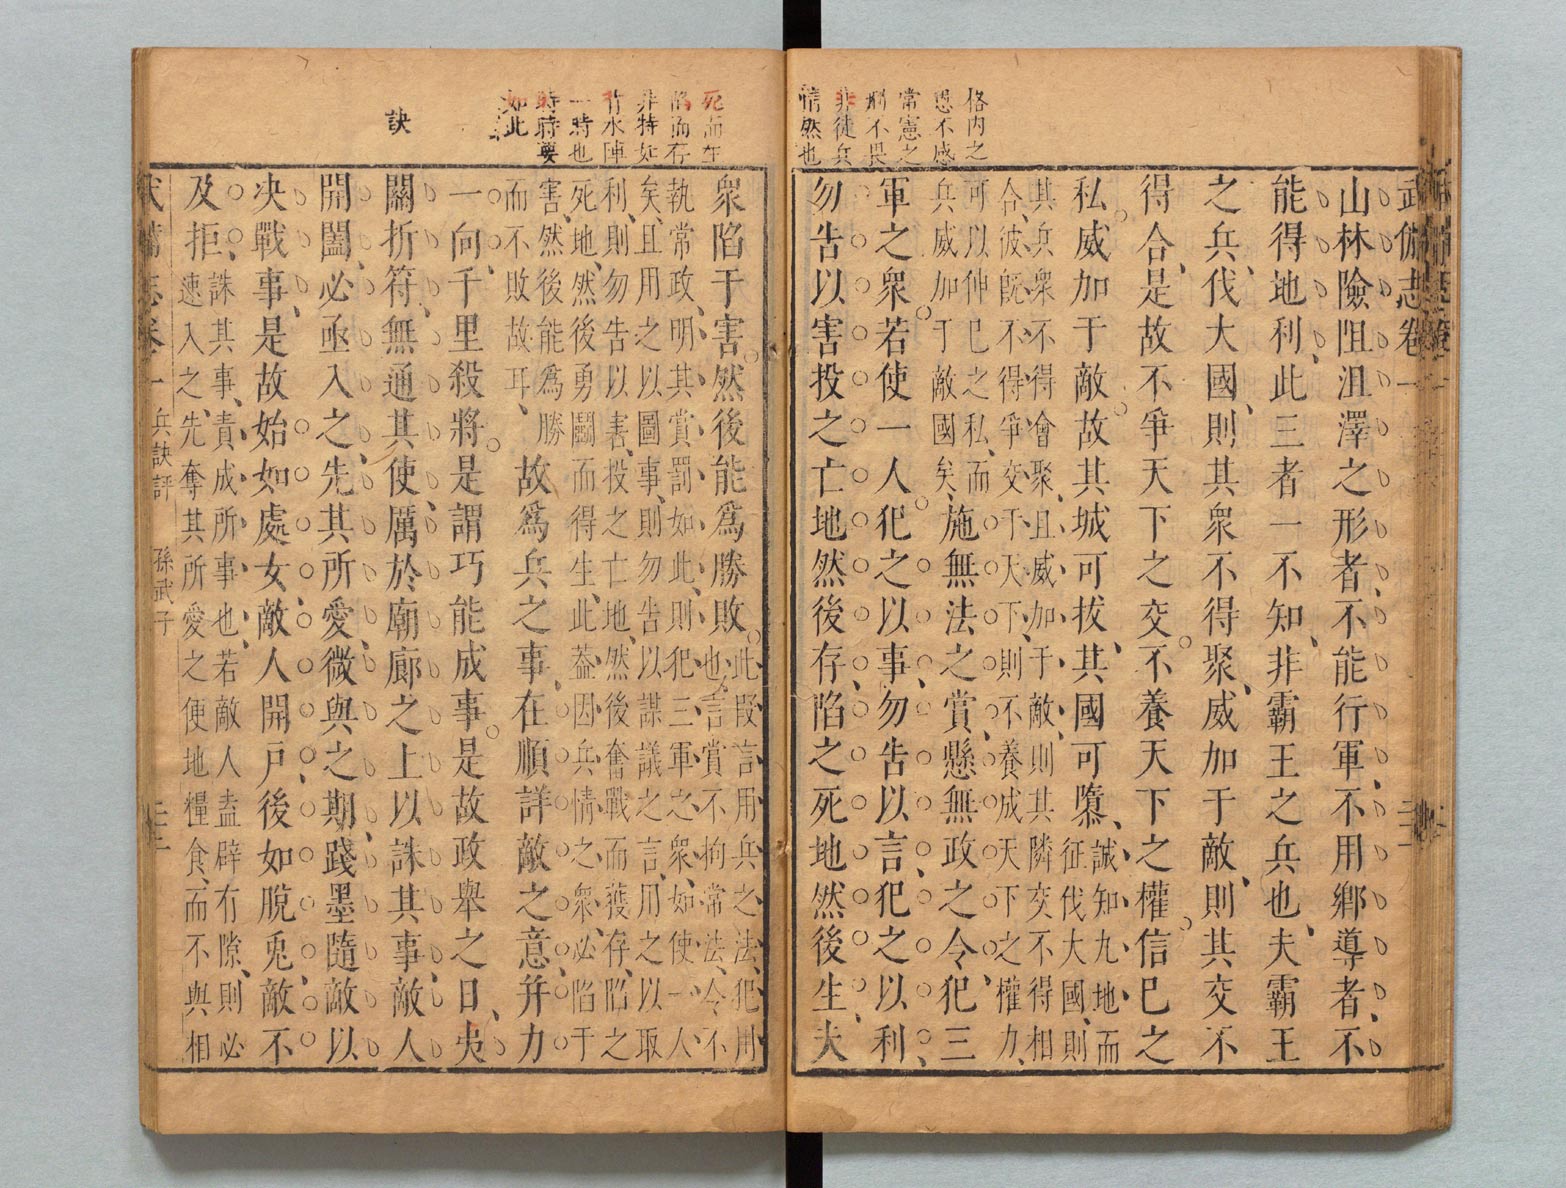 格内之
恩不感
常憲之
刑不畏
非徒兵
情然也
武備志卷一
山林險阻沮澤之形者、不能行軍、不用鄉導者、不
能得地利、此三者一不知、非霸王之兵也、夫霸王
之兵、伐大國、則其衆不得聚、威加于敵、則其交不
得合、是故不爭天下之交。不養天下之權。信巳之
私。威加于敵。故其城可拔、其國可隳、誠知九地而
征伐大國、則
其兵衆不得會聚、且威加于敵、則其隣交不得相
合、彼旣不得爭交于天下、則不養成天下之權力、
可以伸巳之私、而
兵威加于敵國矣、施無法之賞、懸無政之令、犯三
軍之衆。若使一人。犯之以事、勿告以言、犯之以利、
勿告以害投之亡地然後存陷之死地然後生、夫
死而生
陷而存
非特如
背水陣
一時也
時時要
如此
訣
衆陷于害。然後能爲勝敗。此段言用兵之法、犯用
也、言賞不拘常法、令不
執常政、明其賞罰如此、則犯三軍之衆、如使一人
矣、且用之以圖事、則勿告以謀議之言、用之以取
利、則勿告以害、投之亡地、然後奮戰而獲存、陷之
死地、然後勇鬭而得生、此葢因兵情之衆、必陷于
害、然後能爲勝
而不敗故耳、故爲兵之事、在順詳敵之意、并力
一向、千里殺將。是謂巧能成事。是故政舉之日、夷
關折符、無通其使、厲於廟廊之上、以誅其事、敵人
開闔、必亟入之、先其所愛、微與之期、踐墨隨敵、以
决戰事、是故始如處女、敵人開戶、後如脫兎、敵不
及拒。誅其事、責成所事也、若敵人盍辟有隙、則必
速入之、先奪其所愛之便地糧食、而不與相
武備志卷一 兵訣評 孫武子